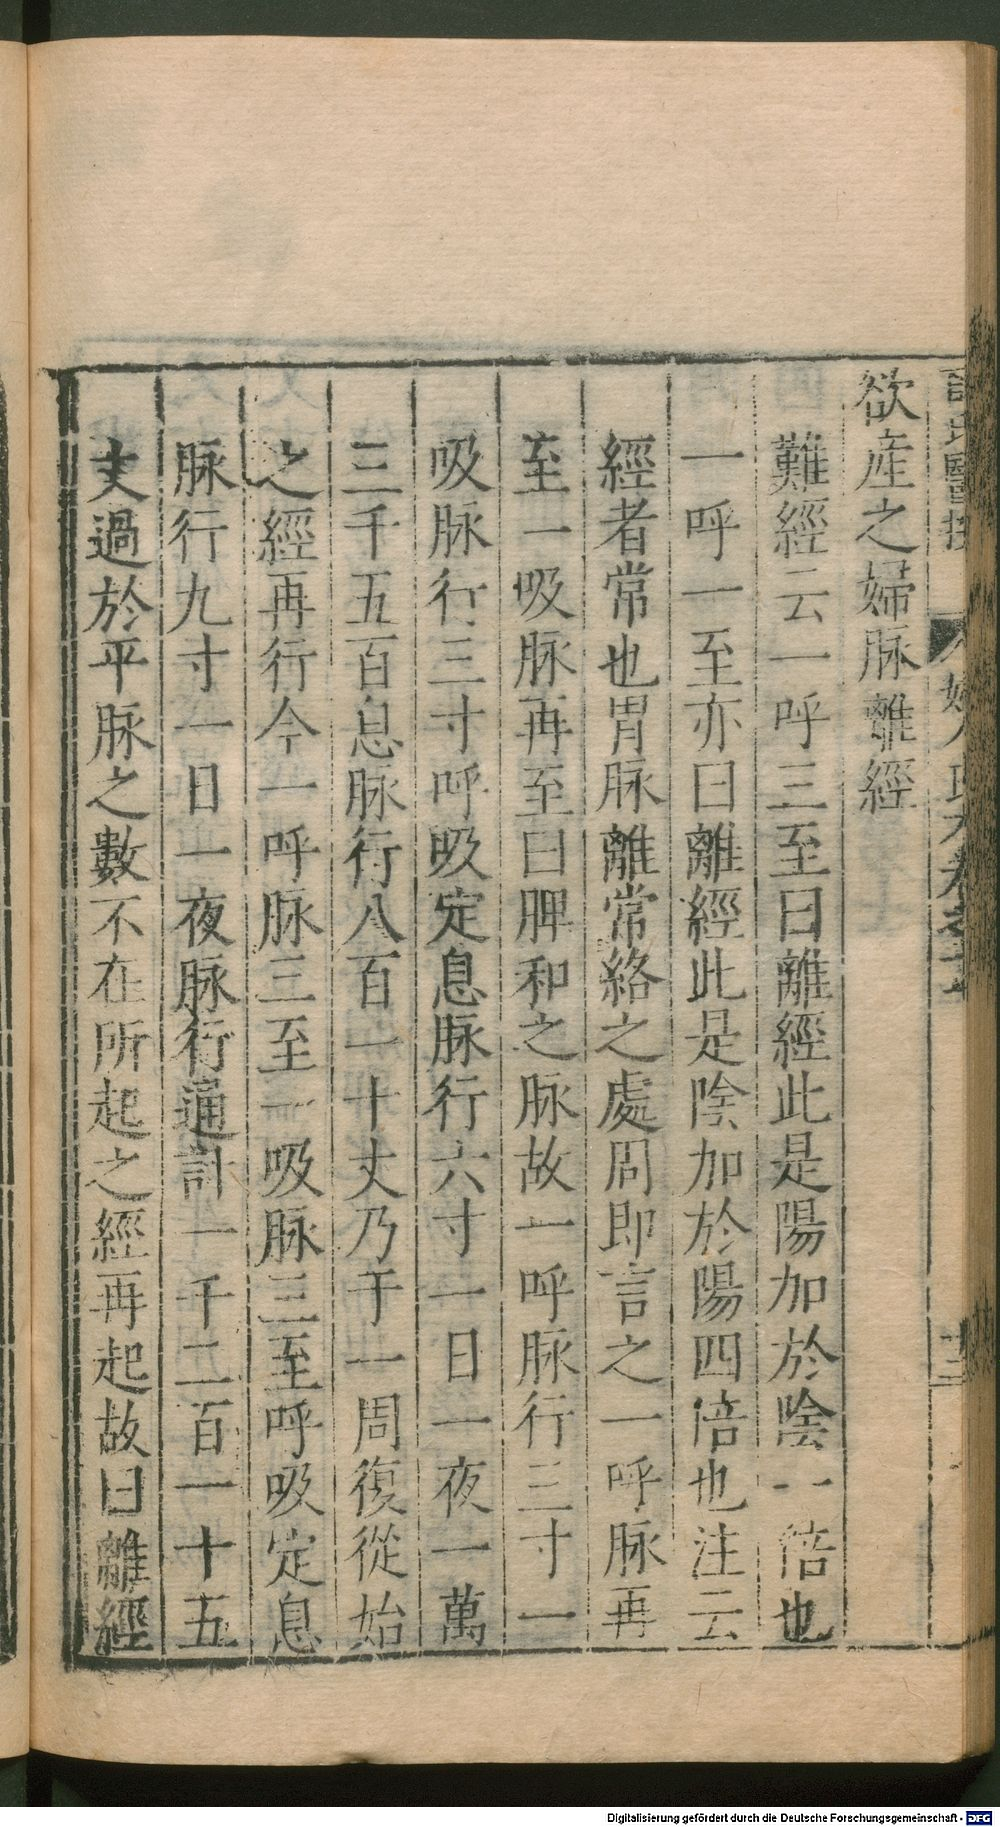 欲産之婦脉離經
難經云一呼三至曰離經此是陽加於陰一倍也
一呼一至亦曰離經此是陰加於陽四倍也注云
經者常也胃脉離常絡之處周即言之一呼脉再
至一吸脉再至曰脾和之脉故一呼脉行三寸一
吸脉行三寸呼吸定息脉行六寸一日一夜一萬
三千五百息脉行八百一十丈乃于一周復從始
之經再行今一呼脉三至一吸脉三至呼吸定息
脉行九寸一日一夜脉行通計一千二百一十五
丈過於平脉之數不在所起之經再起故曰離經
Digitalisierung gefördert durch die Deutsche Forschungsgemeinschaft - DFG